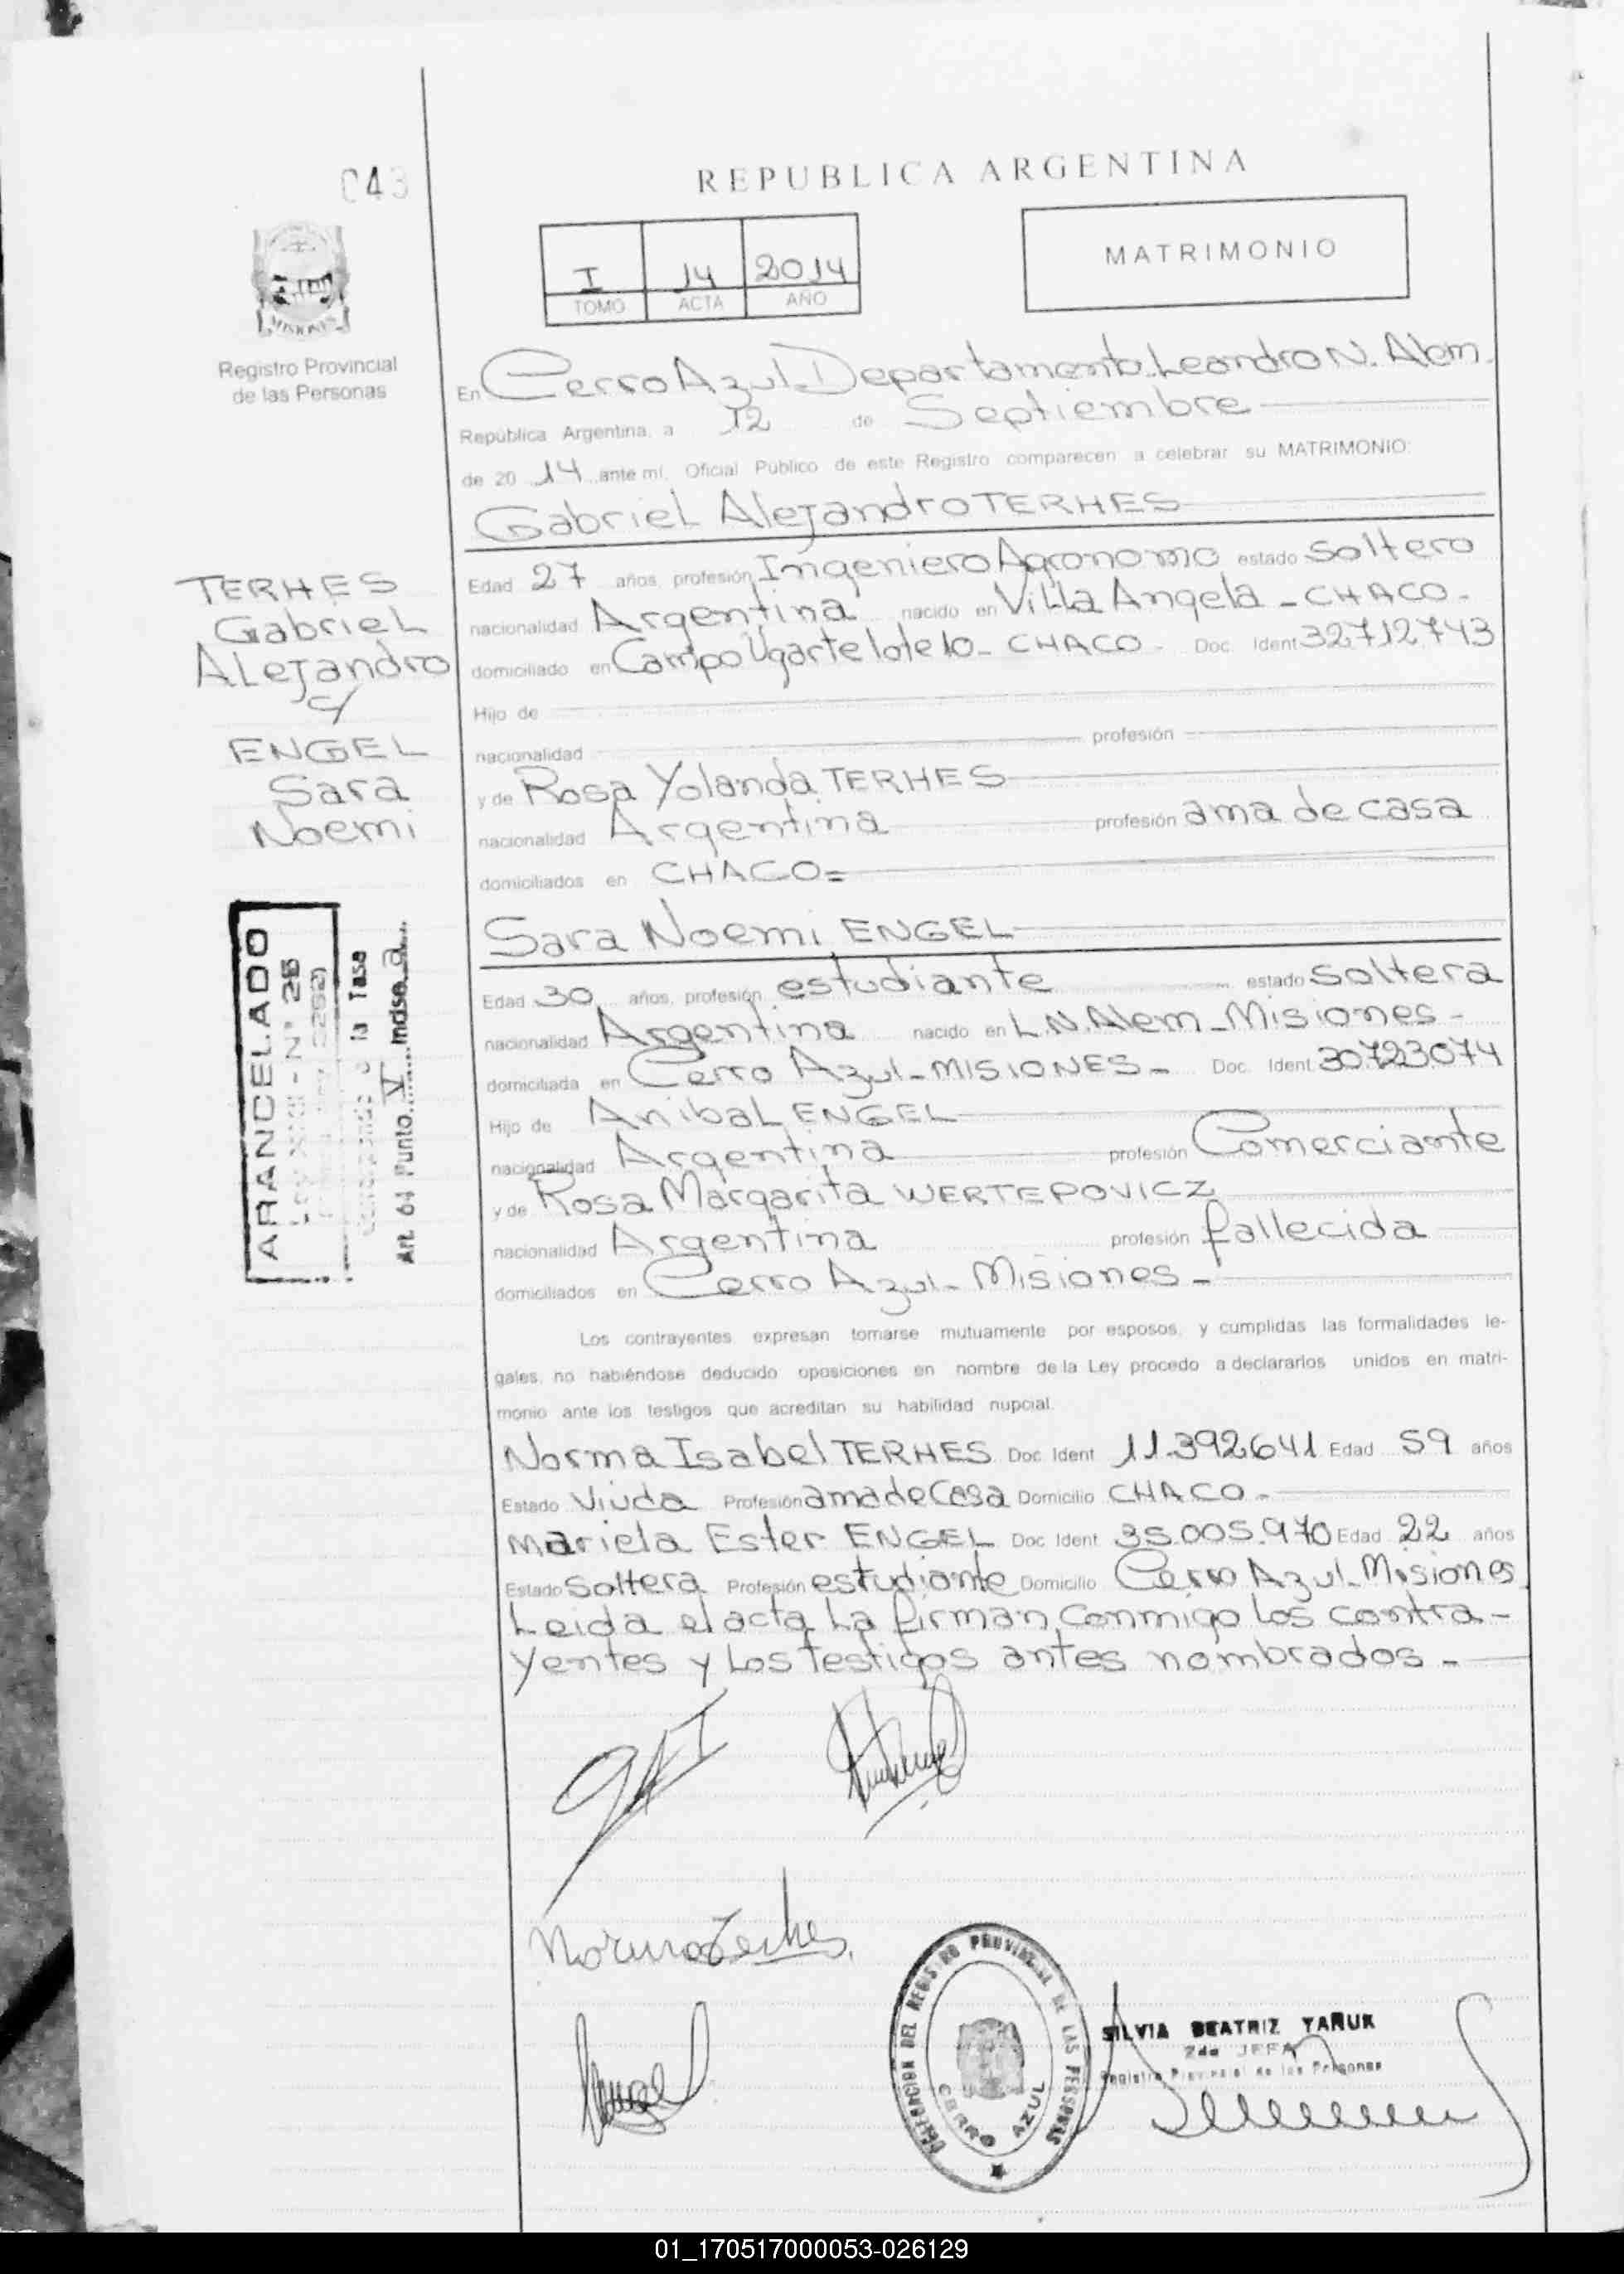 043
REPUBLICA ARGENTINA
I 14 2014
TOMO ACTA AÑO
MATRIMONIO
MISIONES
Registro Provincial
de las Personas
En Cerro Azul Departamento Leandro N. Alem.
República Argentina, a 12 de Septiembre
de 2014 ante mí, Oficial Público de este Registro comparecen a celebrar su MATRIMONIO:
Gabriel Alejandro TERHES
Edad 27 años, profesión Ingeniero Agronomo estado Soltero
nacionalidad Argentina nacido en Villa Angela - CHACO -
domiciliado en Campo Ugarte lote 10 - CHACO - Doc. Ident 32.712.743
Hijo de
nacionalidad profesión
y de Rosa Yolanda TERHES
nacionalidad Argentina profesión ama de casa
domiciliados en CHACO =
TERHES
Gabriel
Alejandro
c/
ENGEL
Sara
Noemi
Sara Noemi ENGEL
Edad 30 años, profesión estudiante estado Soltera
nacionalidad Argentina nacido en L.N. Alem - Misiones -
domiciliada en Cerro Azul - MISIONES - Doc. Ident 30.723.074
Hijo de Anibal ENGEL
nacionalidad Argentina profesión Comerciante
y de Rosa Margarita WERTEPOVICZ
nacionalidad Argentina profesión fallecida
domiciliados en Cerro Azul - Misiones -
ARANCELADO
la Tasa
Art. 64 Punto V Indso a
Los contrayentes expresan tomarse mutuamente por esposos, y cumplidas las formalidades le-
gales, no habiéndose deducido oposiciones en nombre de la Ley procedo a declararlos unidos en matri-
monio ante los testigos que acreditan su habilidad nupcial.
Norma Isabel TERHES Doc Ident 11.392641 Edad 59 años
Estado Viuda Profesión ama de Casa Domicilio CHACO -
Mariela Ester ENGEL Doc Ident 35.005.970 Edad 22 años
Estado Soltera Profesión estudiante Domicilio Cerro Azul - Misiones
Leida el acta La firman Conmigo Los contra-
yentes y Los testigos antes nombrados -
Norma Terhes
DELEGACION DEL REGISTRO PROVINCIAL DE LAS PERSONAS
CERRO AZUL
SILVIA BEATRIZ YAÑUK
2da JEFA
Registro Provincial de las Personas
01_170517000053-026129